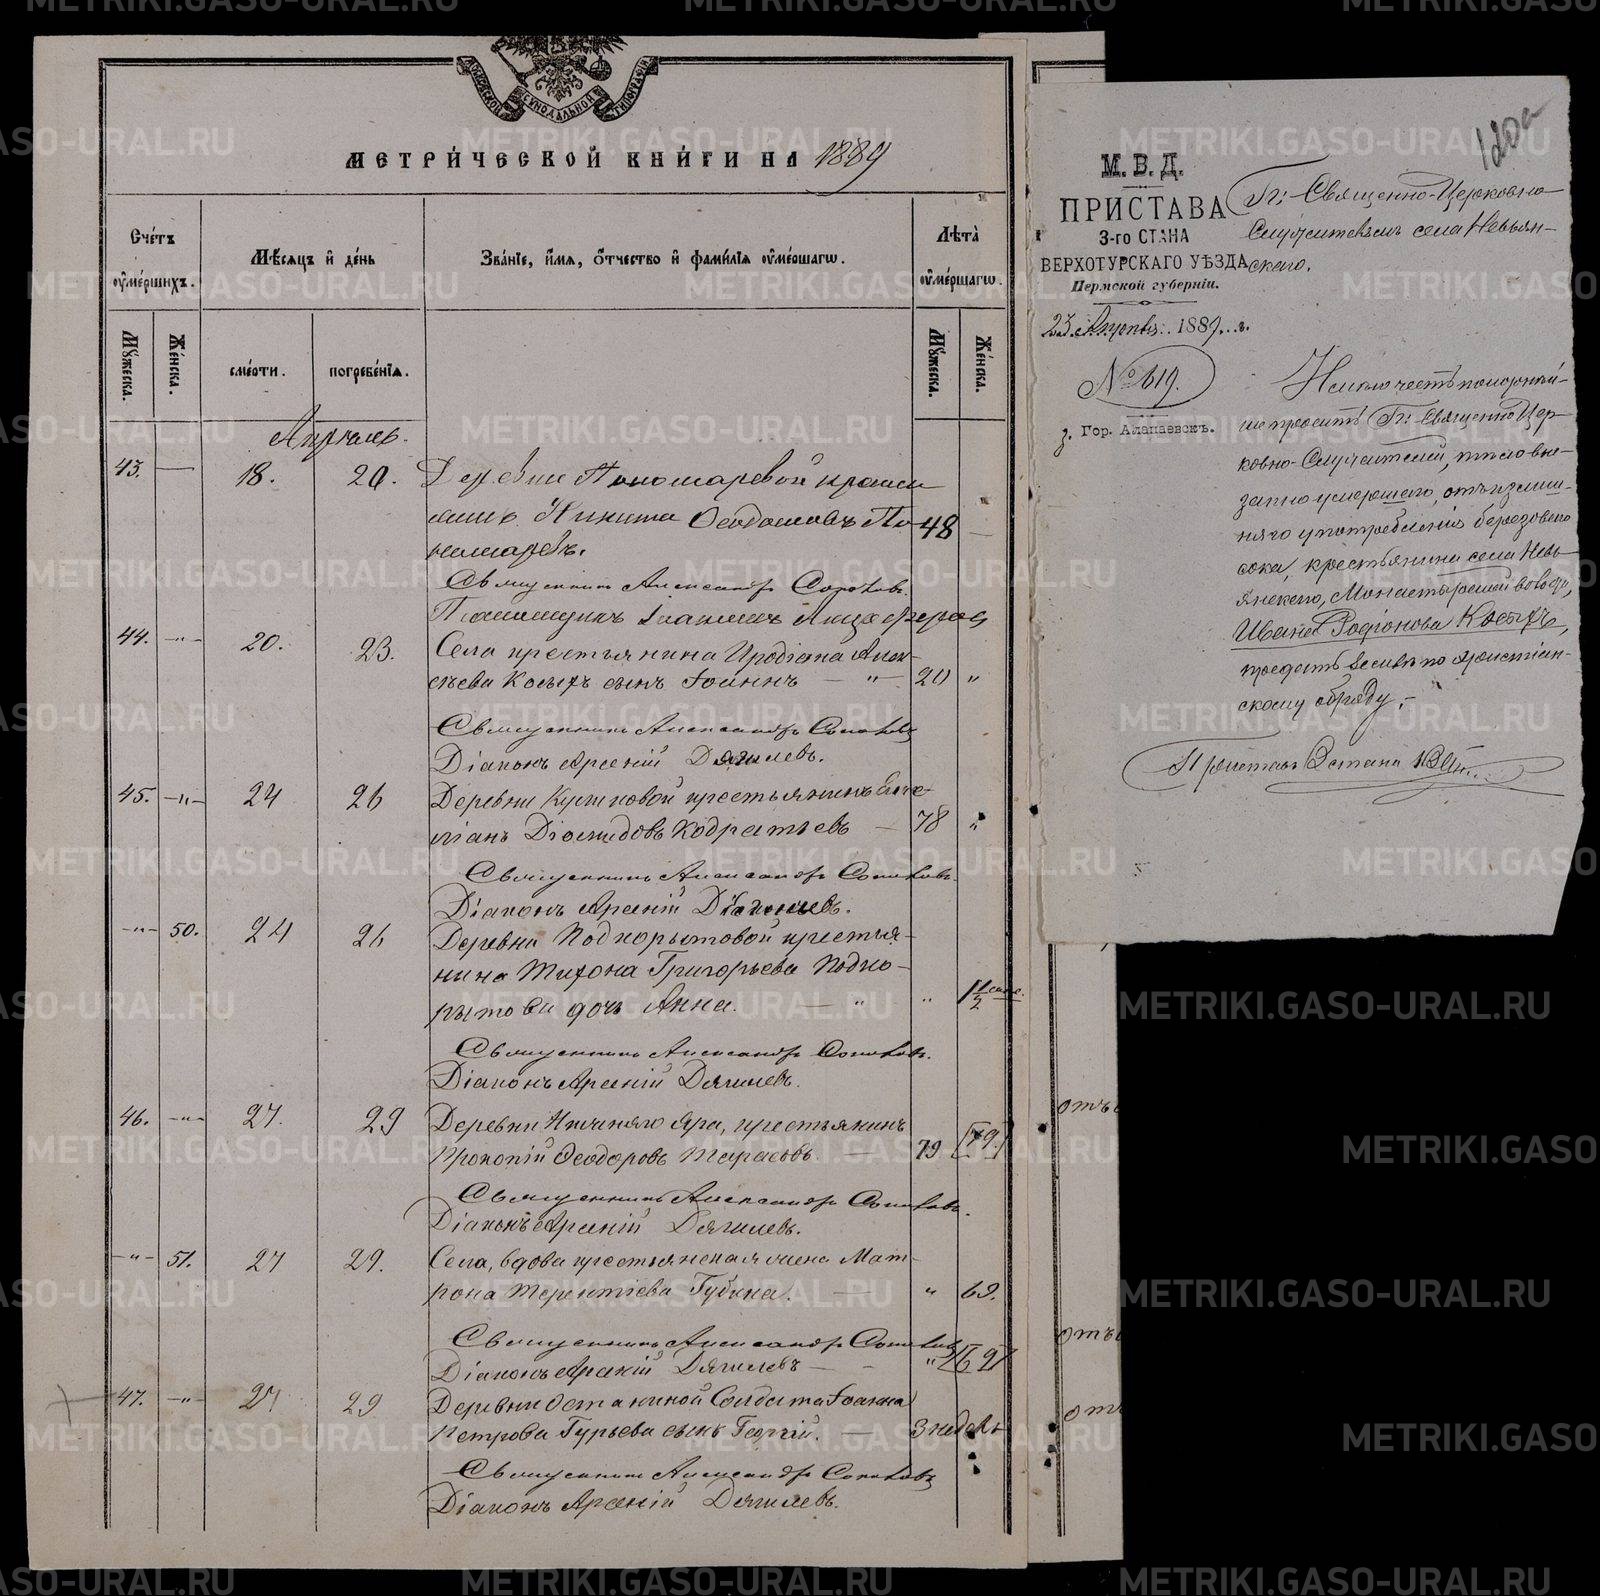 МОСКОВСКОЙ СѴНОДАЛЬНОЙ ТИПОГРАФІИ
МЕТРИ́ЧЕСКОЙ КНИ́ГИ НА 1889
Сче́тъ
ᲂу҆ме́ршихъ.
Мѣ́сѧцъ и҆ де́нь
Зва́нїе, и҆́мѧ, ѻ҆́тчество и҆ фамі́лїѧ ᲂу҆ме́ршагѡ.
Лѣ́та
ᲂу҆ме́ршагѡ.
Мꙋ́жеска.
Же́нска.
сме́рти.
погребе́нїѧ.
Мꙋ́жеска.
Же́нска.
Апрѣль.
43. — 18. 20. Деревни Пономаревой крестья
нинъ Никита Ѳеодоловъ По 48 —
номаревъ.
Священникъ Александръ Сопоховъ.
Псаломщикъ Іоаннъ
44. -"- 20. 23. Села крестьянина Иродіона Алек-
сѣева Косыхъ сынъ Іоаннъ — "— 20 "
Священникъ Александръ Сопоховъ
Діаконъ Арсеній Дягилевъ.
45. -"- 24 26 Деревни Куликовой крестьянинъ Еме-
ліанъ Діомидовъ Кодратьевъ — 78 "
Священникъ Александръ Сопоховъ.
Діаконъ Арсеній Дягилевъ.
-"- 50. 24 26 Деревни Подкорытовой крестья-
нина Тихона Григорьева Подко-
рытова дочь Анна. — " " 1½
Священникъ Александръ Сопоховъ.
Діаконъ Арсеній Дягилевъ.
46. -"- 27. 29 Деревни Нижняго Яра, крестьянинъ
Прокопій Ѳеодоровъ Тарасовъ. — 79 [79.]
Священникъ Александръ Сопоховъ.
Діаконъ Арсеній Дягилевъ.
-"- 51. 27 29. Села, вдова крестьянская жена Мат-
рона Терентіева Губина. — " 69.
Священникъ Александръ Сопоховъ
Діаконъ Арсеній Дягилевъ — - " 69
47. -"- 27 29 Деревни Останиной Солдата Іоанна
Петрова Гурьева сынъ Георгій. — 3 недѣль
Священникъ Александръ Сопоховъ
Діаконъ Арсеній Дягилевъ.
120а
М. В. Д.
ПРИСТАВА
3-го СТАНА
ВЕРХОТУРСКАГО УѢЗДА
Пермской губерніи.
23 Апрѣля 1889 г.
№ 619.
г. Гор. Алапаевскъ.
Гг. Священно-Церковно-
Служителямъ села Невьян-
скаго.
Имѣю честь покорнѣй-
ше просить Гг. Священно Цер-
ковно-Служителей, тѣло вне-
запно умершаго, отъ излиш-
няго употребленія березоваго
сока, крестьянина села Невь-
янскаго, Монастырской волости,
Ивана Родіонова Косыхъ,
предать землѣ по христіан-
скому обряду.-
Приставъ 3 стана
отъ
отъ
отъ
METRIKI.GASO-URAL.RU